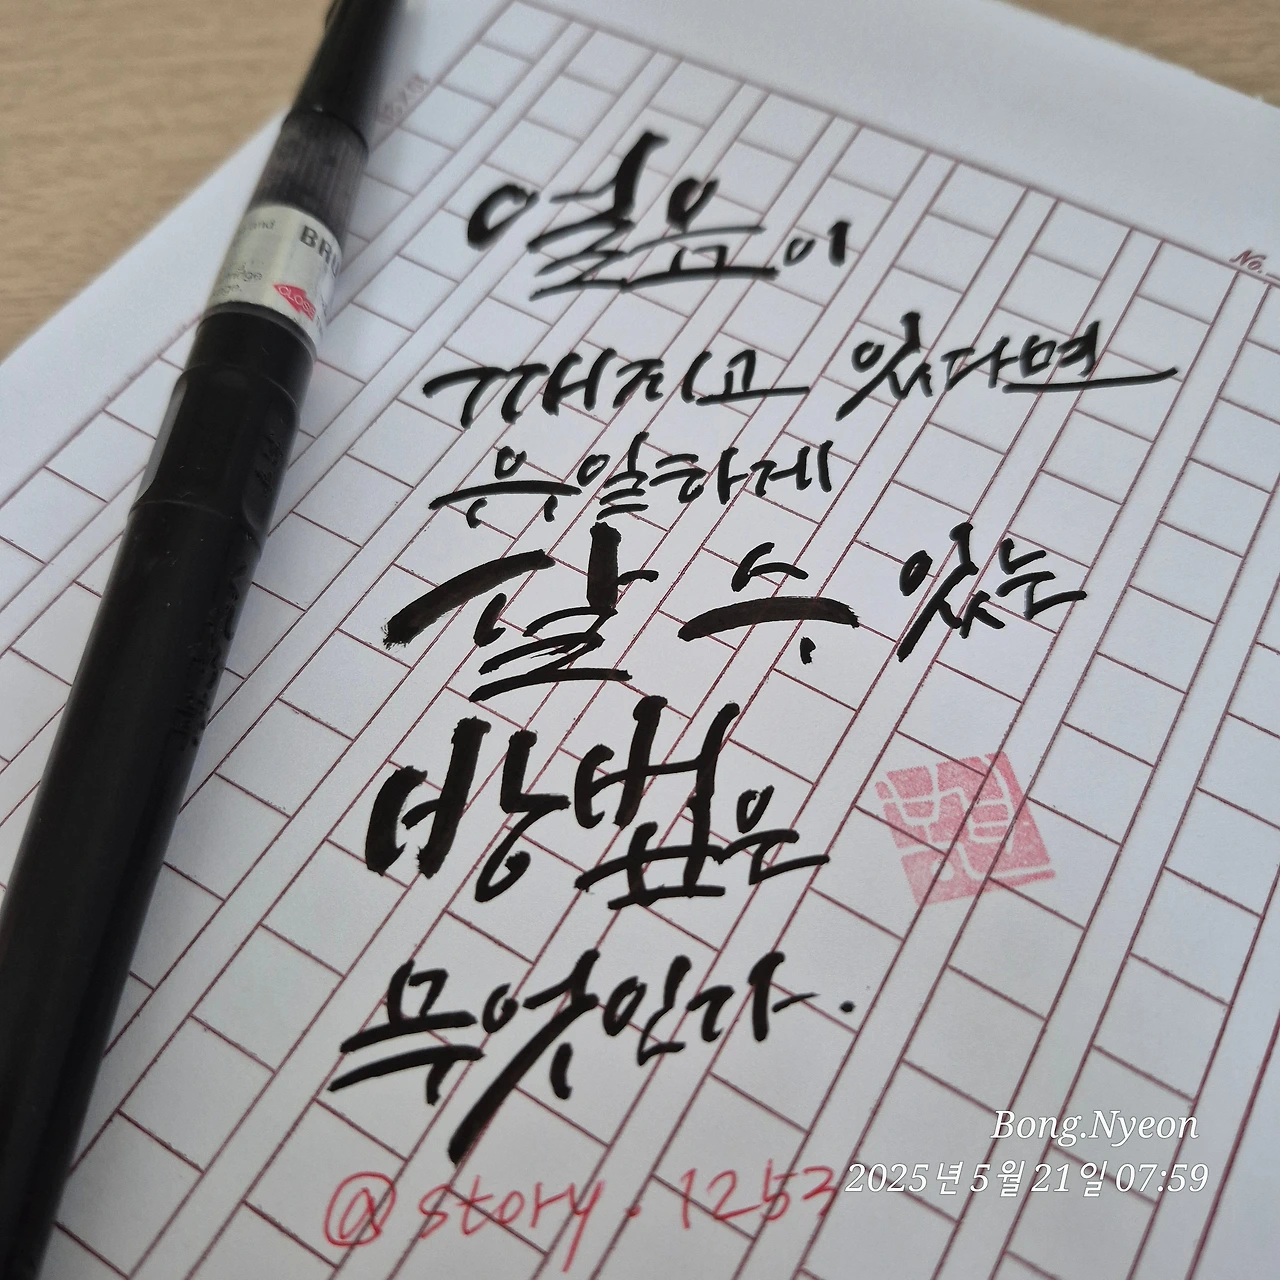 얼음이
깨지고 있다면
유일하게
살 수 있는
방법은
무엇인다.
@story.1253
Bong.Nyeon
2025년 5월 21일 07:59
No.
BRU
CLOSE